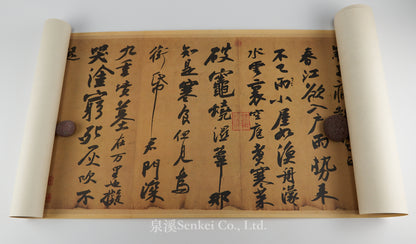 春江欲入戶雨勢來
不已雨小屋如漁舟濛〻
水雲裏空庖煮寒菜
破竈燒濕葦那
知是寒食但見烏
銜帋 君門深
九重墳墓在万里也擬
哭塗窮死灰吹不
起
泉溪Senkei Co., Ltd.